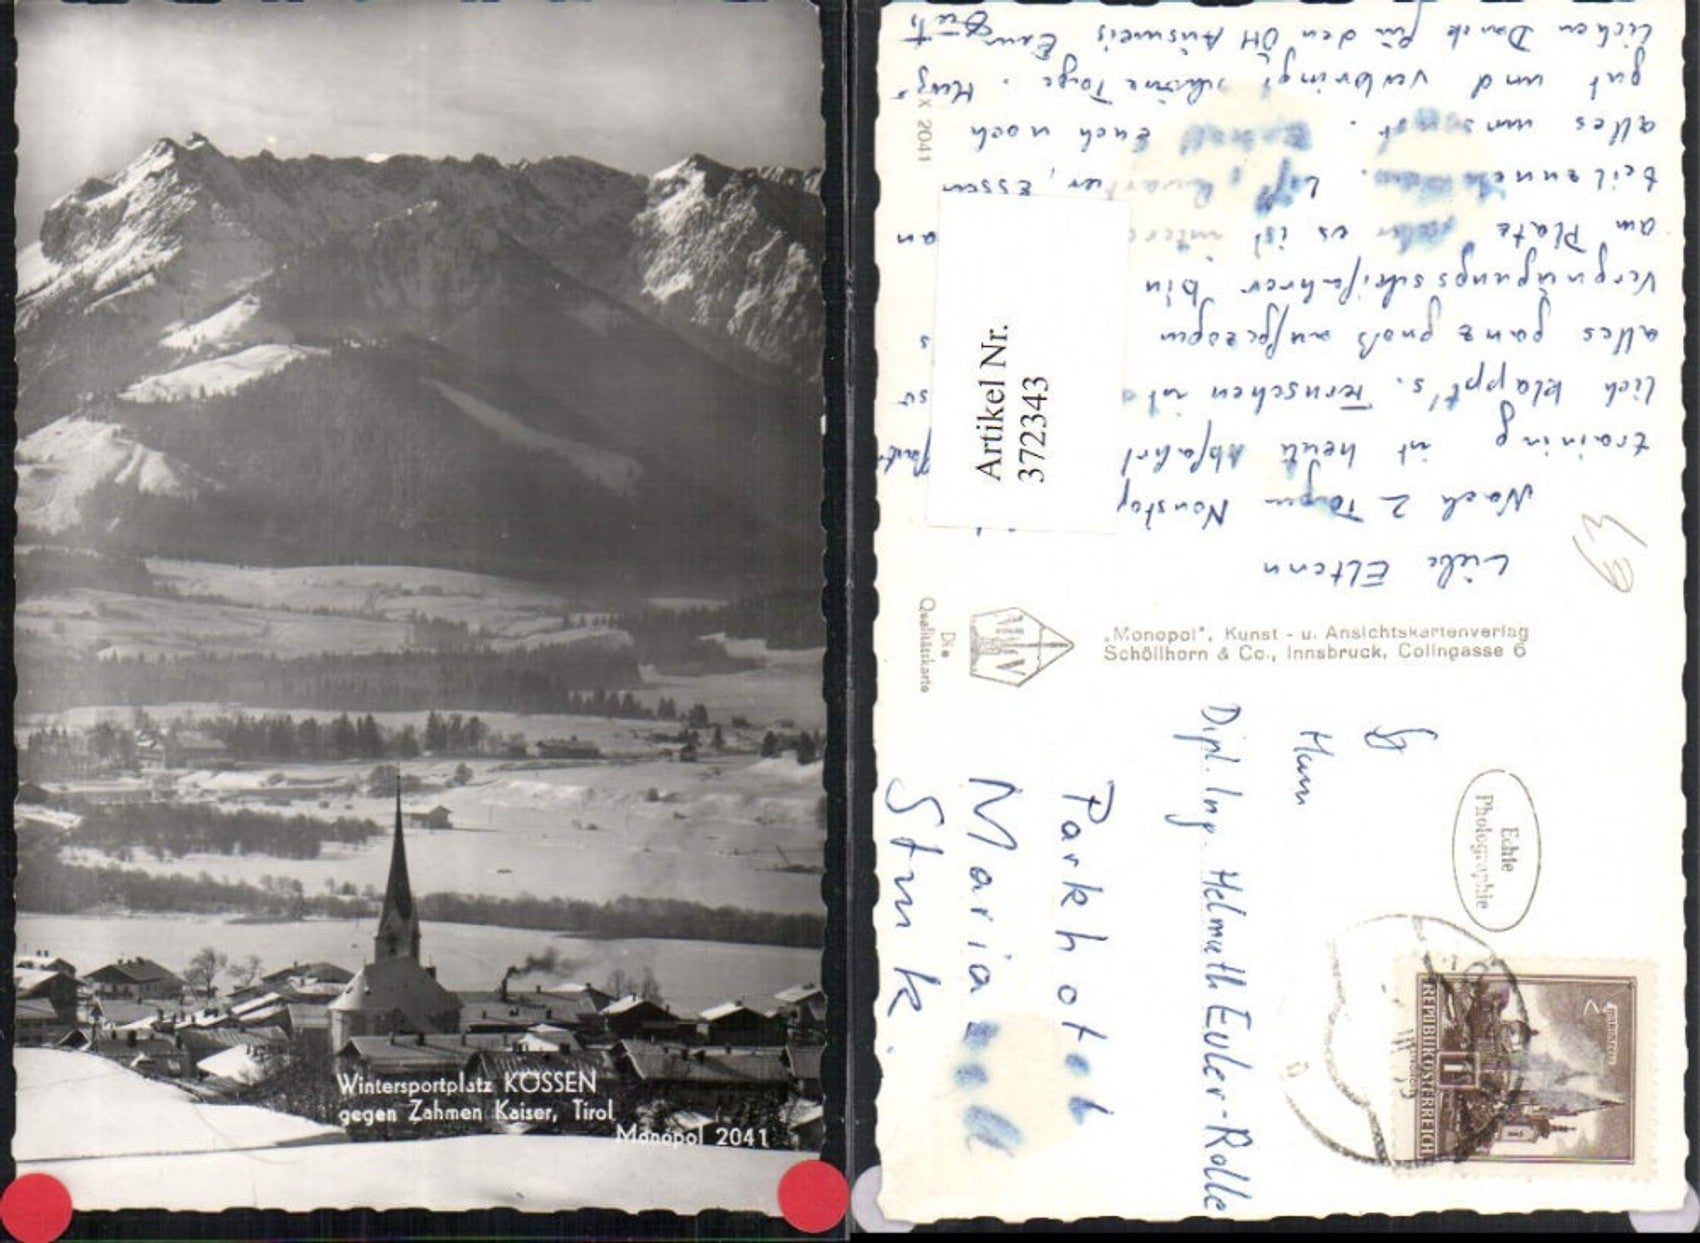 Wintersportplatz KÖSSEN
gegen Zahmen Kaiser, Tirol
Monopol 2041
Liebe Eltern
Nach 2 Tagen Nonstop
training ist heute Abfahrt
lich klappt's.
alles ganz groß aufgezogen
Vergnügungsschifahrer bin
am Platz aber es ist an
teilzunehmen. Essen
alles umsonst. Euch noch
gut und verbringt schöne Tage. Herz-
lichen Dank für den ÖH Ausweis
X 2041
Artikel Nr.
372343
Die
Qualitätskarte
„Monopol", Kunst - u. Ansichtskartenverlag
Schöllhorn & Co., Innsbruck, Colingasse 6
Echte
Photographie
Dipl. Ing. Helmuth Euler-Rolle
Parkhotel
Maria
REPUBLIK ÖSTERREICH
1